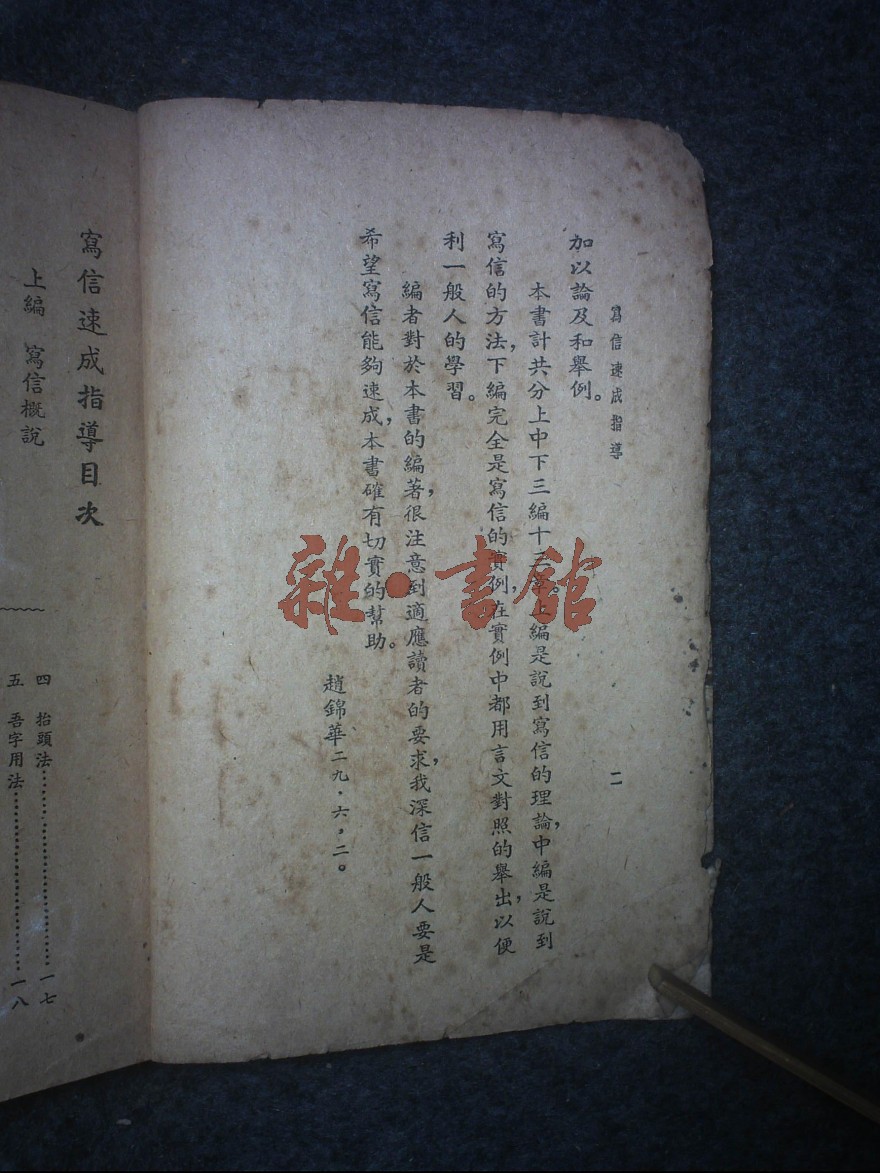 寫信速成指導
二
加以論及和舉例。
本書計共分上中下三編十三章。上編是說到寫信的理論，中編是說到
寫信的方法，下編完全是寫信的實例，在實例中都用言文對照的舉出，以便
利一般人的學習。
編者對於本書的編著，很注意到適應讀者的要求，我深信一般人要是
希望寫信能夠速成，本書確有切實的幫助。
趙錦華二九，六，二。
寫信速成指導目次
上編　寫信概說
四　抬頭法…………一七
五　吾字用法…………一八
雜·書館